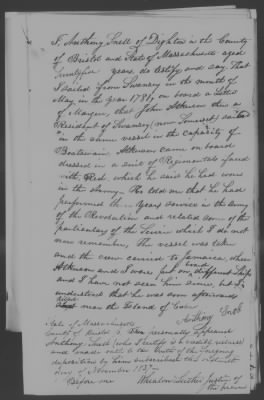 I, Anthony Snell of Dighton in the County
of Bristol and State of Massachusetts aged
years, do certify and say, That
I sailed from Swansey in the month of
May in the year 178 on board a Letter
of Marque, that John Atkeson then a
Resident of Swansey (now Somerset) sailed
in the same vessel in the capacity of
Boatswain Atkeson came on board
dressed in a suit of Regimentals faced
with Red, which he said he had worn
in the Army. He told me that he had
performed years service in the Army
of the Revolution and related some of the
particulars of the Service which I do not
now remember. The vessel was taken
and the crew carried to Jamaica, when
Atkeson and I were put on different ships
and I have not seen him since, but I
understood that he was soon afterwards
near the Island of Cuba
Anthony Snell
State of Massachusetts
County of Bristol Then personally appeared
Anthony Snell (who I certify is
and made oath to the truth of the foregoing
deposition by him subscribed this
day of November 1837
Before me Justice of
the peace